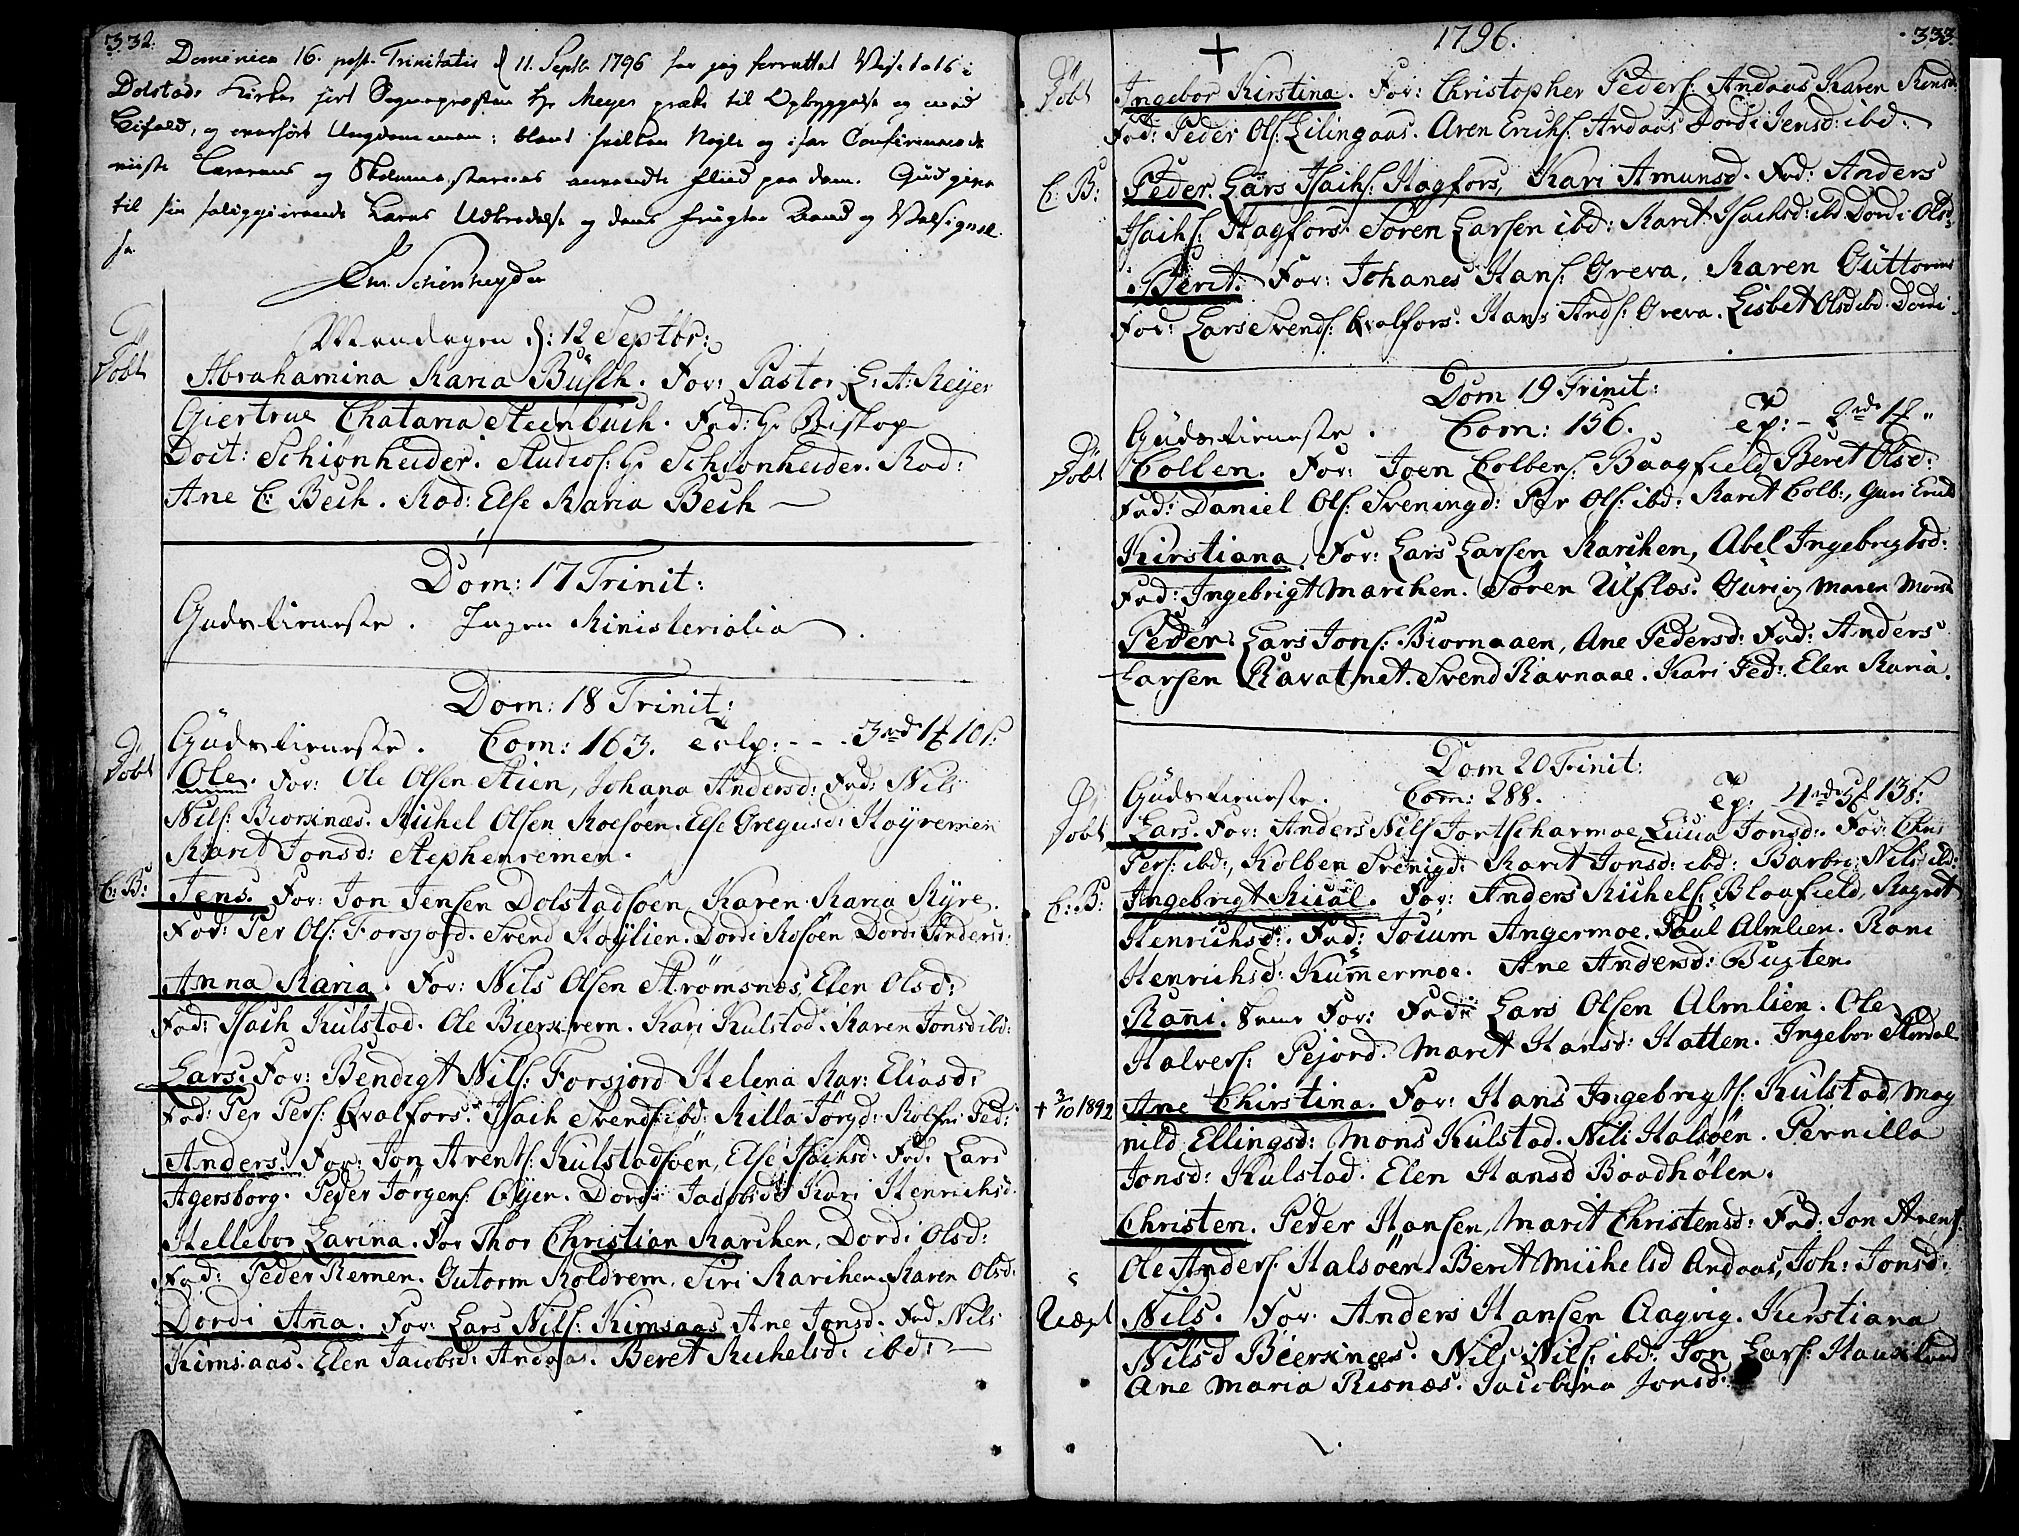 332.
Dominica 16. post. Trinitatis d 11. Septb. 1796 har jeg forrettet Visitats i
Dolstads Kirke, hørt Sognepræsten Hr Meyer præke til Opbyggelse og med
Bifald, og overhørt Ungdommen: blant hvilken Nogle og især Confirmerede
viiste Lærerens og Skolemesternes anvendte Fliid paa dem. Gud give
til sin saliggiørende Læres Udbredelse og dens Frugter Band og Velsignel-
se
Chr. Schönheyder
Mandagen d: 12 Septbr:
Døbt
Abrahamina Maria Büsch. For: Pastor L: A: Meyer
Giertrue Chataria Steenbuch. Fad: Hr Biskop
Doct: Schiønheider. Studios: Hr Schiønheider. Mad:
Ane C: Bech. Mad: Else Maria Bech
Dom: 17 Trinit:
Gudstieneste. Ingen Ministerialia.
Dom: 18 Trinit:
Gudstieneste. Com: 163. - - - 3rd 1 10 s:
Døbt
Ole. For: Ole Olsen Stien, Johana Andersd: Fad: Nils
Nils: Biorknæs. Michel Olsen Moesøen. Else Gregusd: Høyremen
Marit Jonsd: Stephenremen.
C: B:
Jens. For: Jon Jensen Dolstadsøen, Karen Maria Myre.
Fad: Per Ols: Forsjord. Svend Høylien. Dordi Mosøen Dordi Andersd:
Anna Maria. For: Nils Olsen Strømsnæs, Elen Olsd:
Fad: Isach Kulstad. Ole Bierkrem. Kari Kulstad. Karen Jonsd ibd:
Lars. For: Bendigt Nils: Forsjord Helena Mar: Eliasd:
Fad: Per Pers: Qvalfors. Isach Svends: ibd: Milla Jörgd: Ped:
Anders. For: Jon Arents: Kulstadsøen, Else Isachsd. Fad: Lars
Agersborg. Peder Jørgens: Øyen. Dordi Jacobsd Kari Henrichsd.
Hellebor Larina. For Thor Christian Marchen, Dordi Olsd:
Fad: Peder Remen. Gutorm Moldrem. Siri Marchen. Maren Olsd:
Dordi Anna. For: Lars Nils: Kimsaas Ane Jonsd. Fad Nils
Kimsaas. Elen Jacobsd: Andaas. Beret Michelsd: ibd:
1796.
333.
Døbt
Ingebor Kirstina. For: Christopher Peders: Andaas, Karen
Fad: Peder Ols: Lilingaas. Aren Erichs: Andaas Dordi Jensd: ibd:
C: B:
Peder. Lars Isachs: Hagfors, Kari Amunsd. Fad: Anders
Isachs: Hagfors. Søren Larsen ibd: Marit Isachsd: ibd Dordi Olsd:
Berit. For: Johanes Hans: Greva, Maren Guttorms
Fad: Lars Svends: Qvalfors. Hans Ands: Greva. Lisbet Olsd ibd. Dordi
Dom 19 Trinit:
Gudstieneste. Com: 156. Exp: - 2rd 1
Døbt
Colben. For: Joen Colbens: Baagfield, Beret Olsd:
Fad: Daniel Ols: Sveningd: Per Ols: ibd: Marit Colb:, Guri
Kirstiana, For: Lars Larsen Marchen, Abel Ingebrigtsd:
Fad: Ingebrigt Marchen. Søren Ulflæs. Guri og Maren
Peder Lars Jons: Biornaaen, Ane Pedersd: Fad: Anders
Larsen Ravatnet. Svend Ravnaae. Kari Ped: Elen Maria.
Dom 20 Trinit:
Gudstieneste. Com: 288. Exp: 4rd 13 s:
Døbt
Lars. For: Anders Nils: Jonsd: For:
Pers: ibd:, Kolben Svenigd: Marit Jonsd: ibd: Barbro Nilsd ibd:
C: B:
Ingebrigt Mical. For: Anders Michels: Blaafield, Magret
Henrichsd: Fad: Jocum Angermoe. Paul Almlien. Rani
Henrichsd: Kummermoe. Ane Andersd: Bugten.
Rani. Fad: Lars Olsen Almlien. Ole
Halvers: Pejord. Marit Hansd: Hatten. Ingebor
+ 3/10 1892
Ane Chirstina. For: Hans Ingebrigts: Kulstad, Mag
nild Ellingsd: Mons Kulstad. Nils Halsøen. Pernilla
Jonsd: Kulstad. Elen Hansd Baadhølen.
Christen. Peder Hansen, Marit Christensd: Fad: Jon Arents
Ole Anders: Halsøen. Berit Michelsd Andaas, Joh: Jonsd:
Nils. For: Anders Hansen Aagvig. Kirstiana
Nilsd Bierknæs. Nils Nils: ibd: Jon Lars:
Ane Maria Risnæs. Jacobina Jonsd: